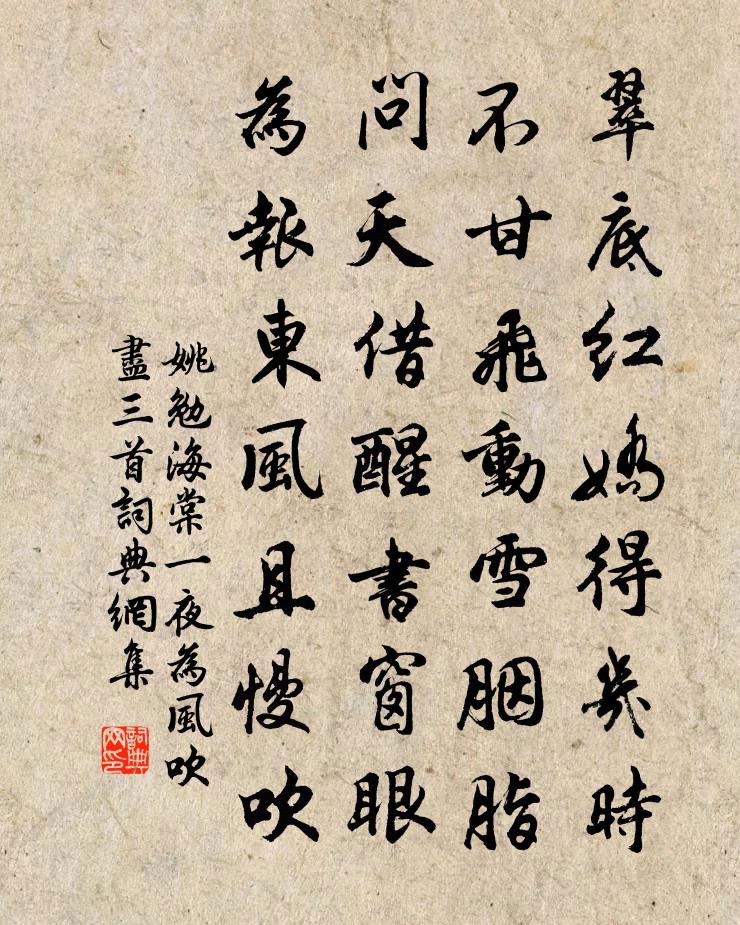 翠底紅嬌得幾時
不甘飛動雪胭脂
問天借醒書窗眼
為報東風且慢吹
姚勉海棠一夜為風吹
盡三首詞典網集
詞典
网印